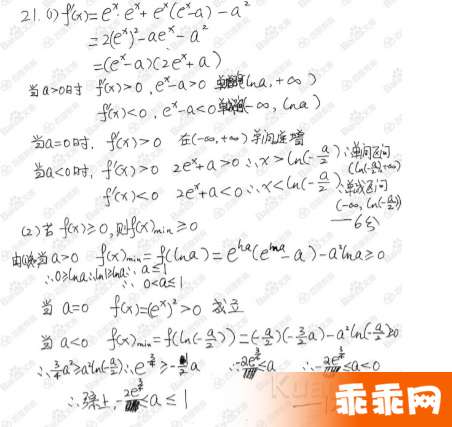 21. (1) f'(x)=eˣ·eˣ+eˣ(eˣ-a)-a²
=2(eˣ)²-aeˣ-a²
=(eˣ-a)(2eˣ+a)
当a>0时 f'(x)>0, eˣ-a>0 (lna,+∞)
f'(x)<0, eˣ-a<0 (-∞, lna)
当a=0时, f'(x)>0 在(-∞,+∞)单间递增
当a<0时, f'(x)>0 2eˣ+a>0 ∴x>ln(-a/2) ∴单间区间
(ln(-a/2),+∞)
f'(x)<0 2eˣ+a<0 ∴x<ln(-a/2) ∴单减区间
(-∞, ln(-a/2))
—6分
(2) 若 f(x)≥0, 则f(x)min≥0
当a>0 f(x)min=f(lna)=e^lna(e^lna-a)-a²lna≥0
∴0≥lna ∴ln1≥lna ∴a≤1
∴0<a≤1
当 a=0 f(x)=(eˣ)²>0 成立
当 a<0 f(x)min=f(ln(-a/2))=(-a/2)(-3/2a)-a²ln(-a/2)≥0
∴3/4a²≥a²ln(-a/2) ∴e^3/4≥-1/2a ∴-2e^3/4≤a ∴-2e^3/4≤a<0
∴综上, -2e^3/4≤a≤1
乖乖网